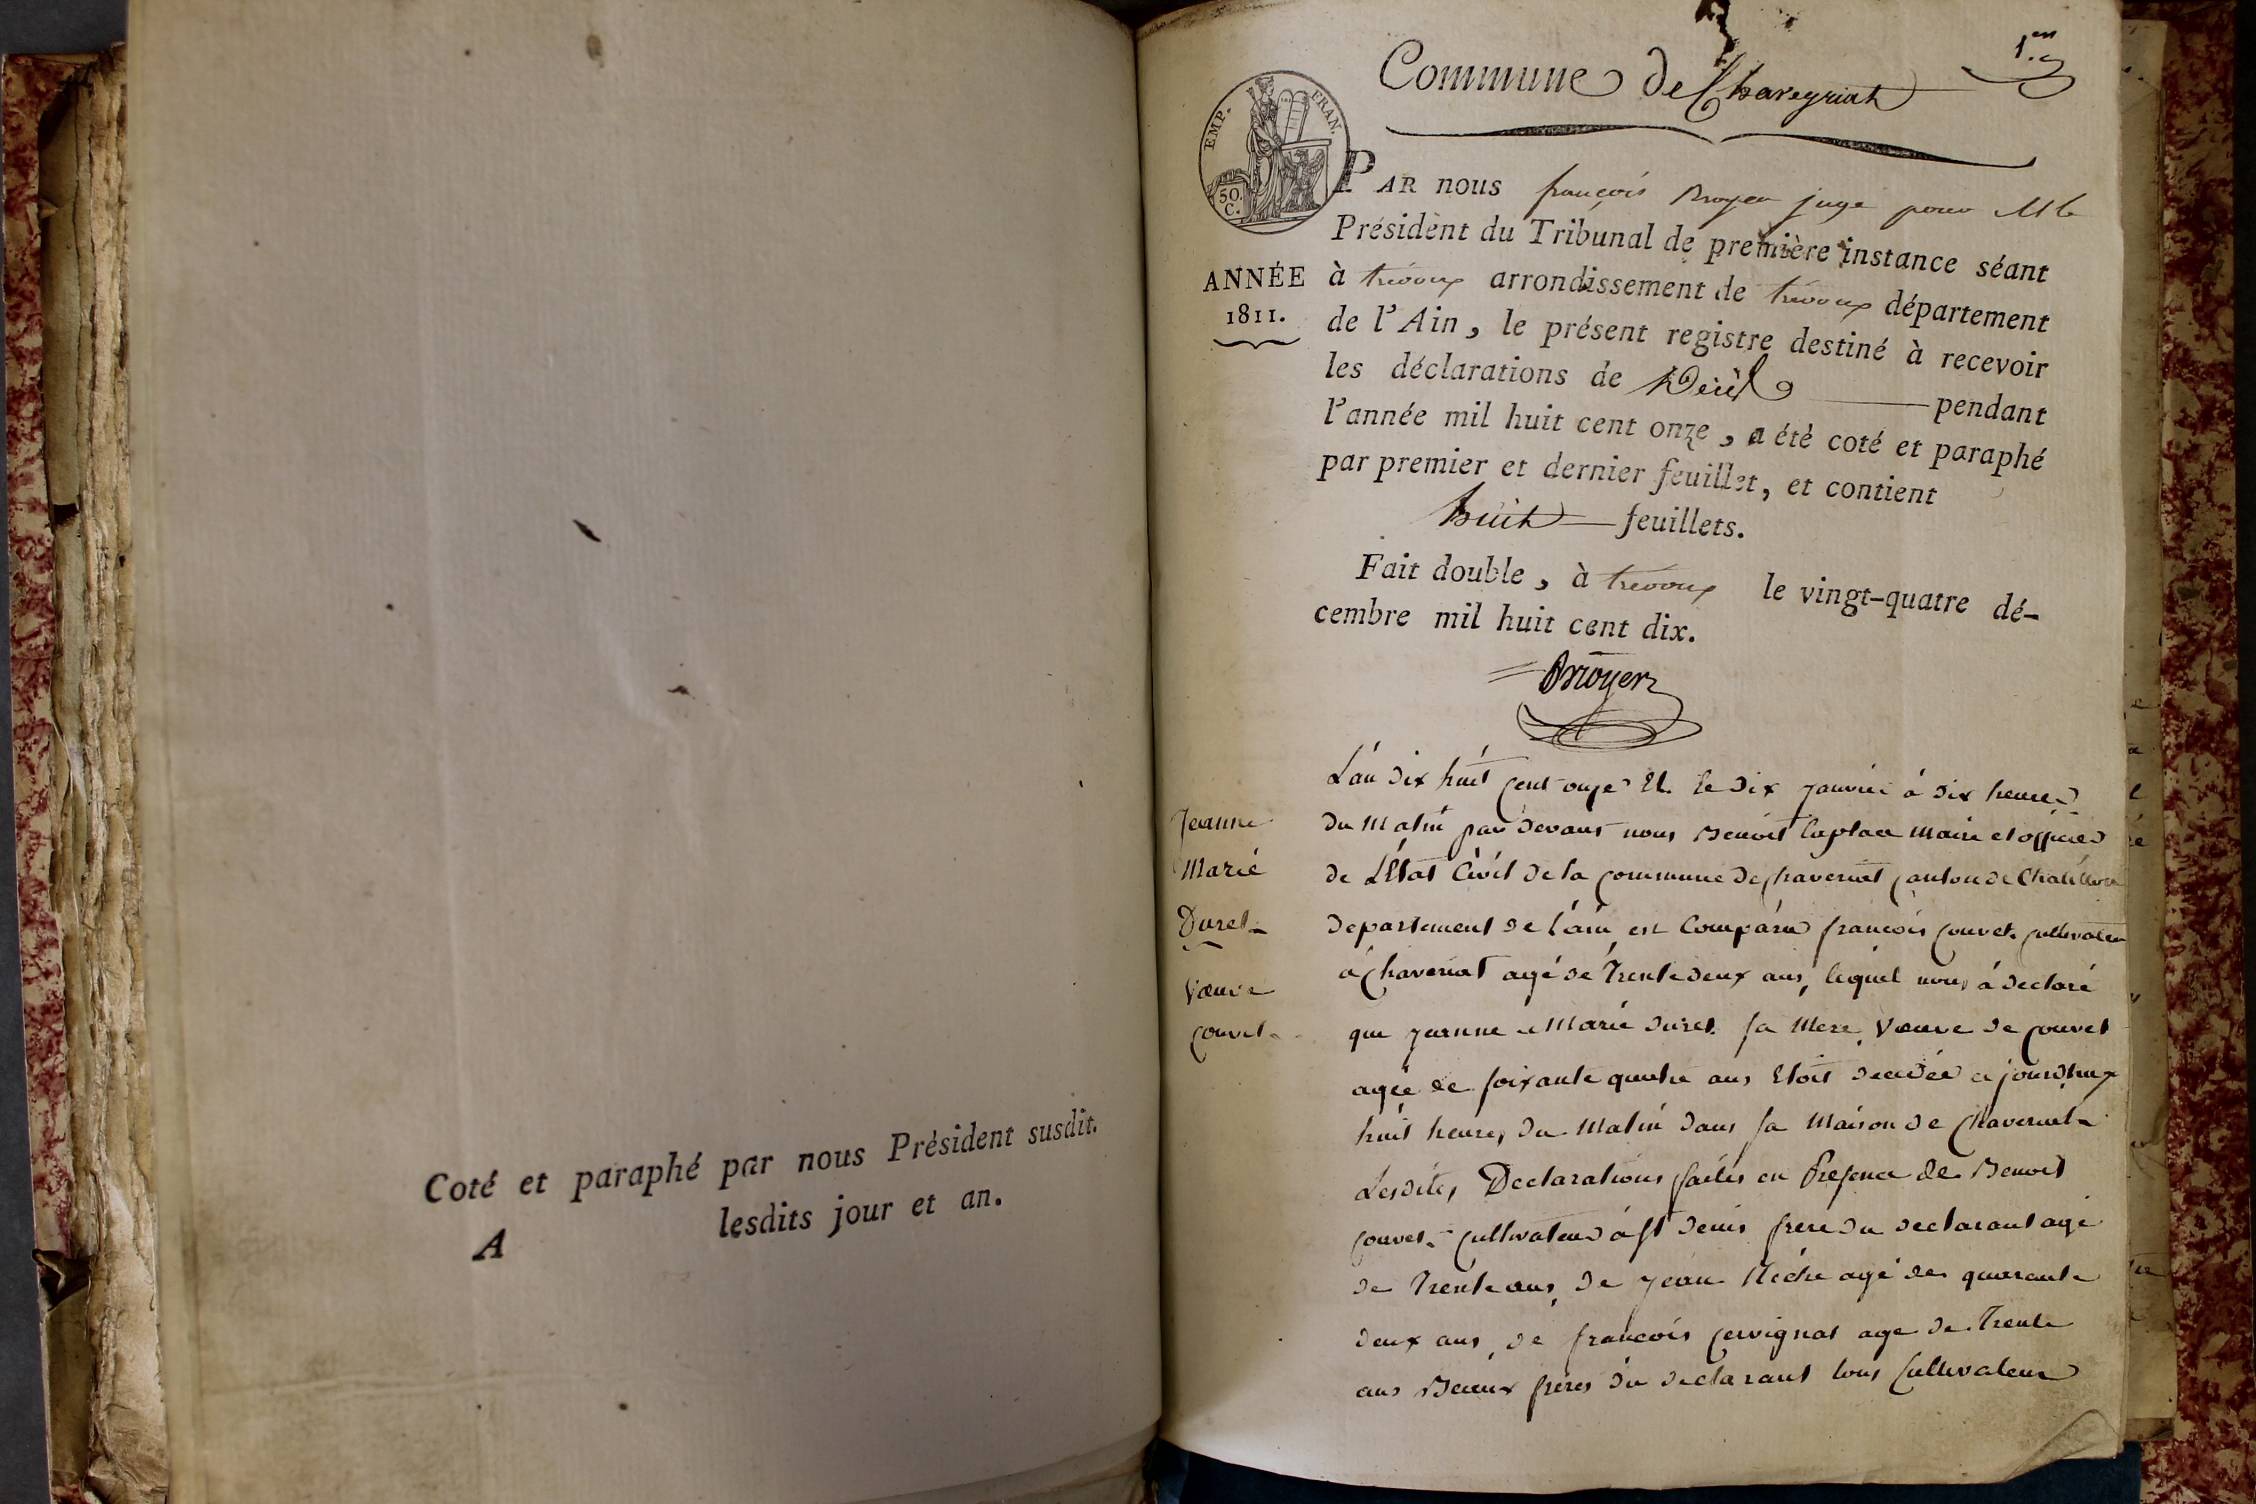 Coté et paraphé par nous Président susdit.
lesdits jour et an.
A
1.er
Commune de Chaveyriat
EMP. FRAN.
50. C.
PAR nous françois Broyer juge pour Mr le
Président du Tribunal de première instance séant
ANNÉE
1811.
à trévoux arrondissement de trévoux département
de l'Ain, le présent registre destiné à recevoir
les déclarations de Décès pendant
l'année mil huit cent onze, a été coté et paraphé
par premier et dernier feuillet, et contient
huit feuillets.
Fait double, à trévoux le vingt-quatre dé-
cembre mil huit cent dix.
Broyer
Jeanne
Marie
Duret
Vœuve
Couvet
L'an dix huit cent onze Et le dix janvier à dix heures
du Matin par devant nous Benoit Laplace Maire et officier
de L'Etat Civil de la commune de Chaveriat Canton de Chatillon
departement de l'ain est Comparu françois Couvet Cultivateur
à Chaveriat agé de Trente deux ans, lequel nous à declaré
que Jeanne Marie Duret sa Mere, Vœuve de Couvet
agée de soixante quatre ans Etoit decedée ajourdhuy
huit heures du Matin dans sa Maison de Chaveriat
Lesdites Declarations faites en Presence de Benoit
Couvet Cultivateur à St denis frere du declarant agé
de Trente ans, de Jean agé de quarante
deux ans, de francois Cervignat age de Trente
ans Beaux freres du declarant tous Cultivateur